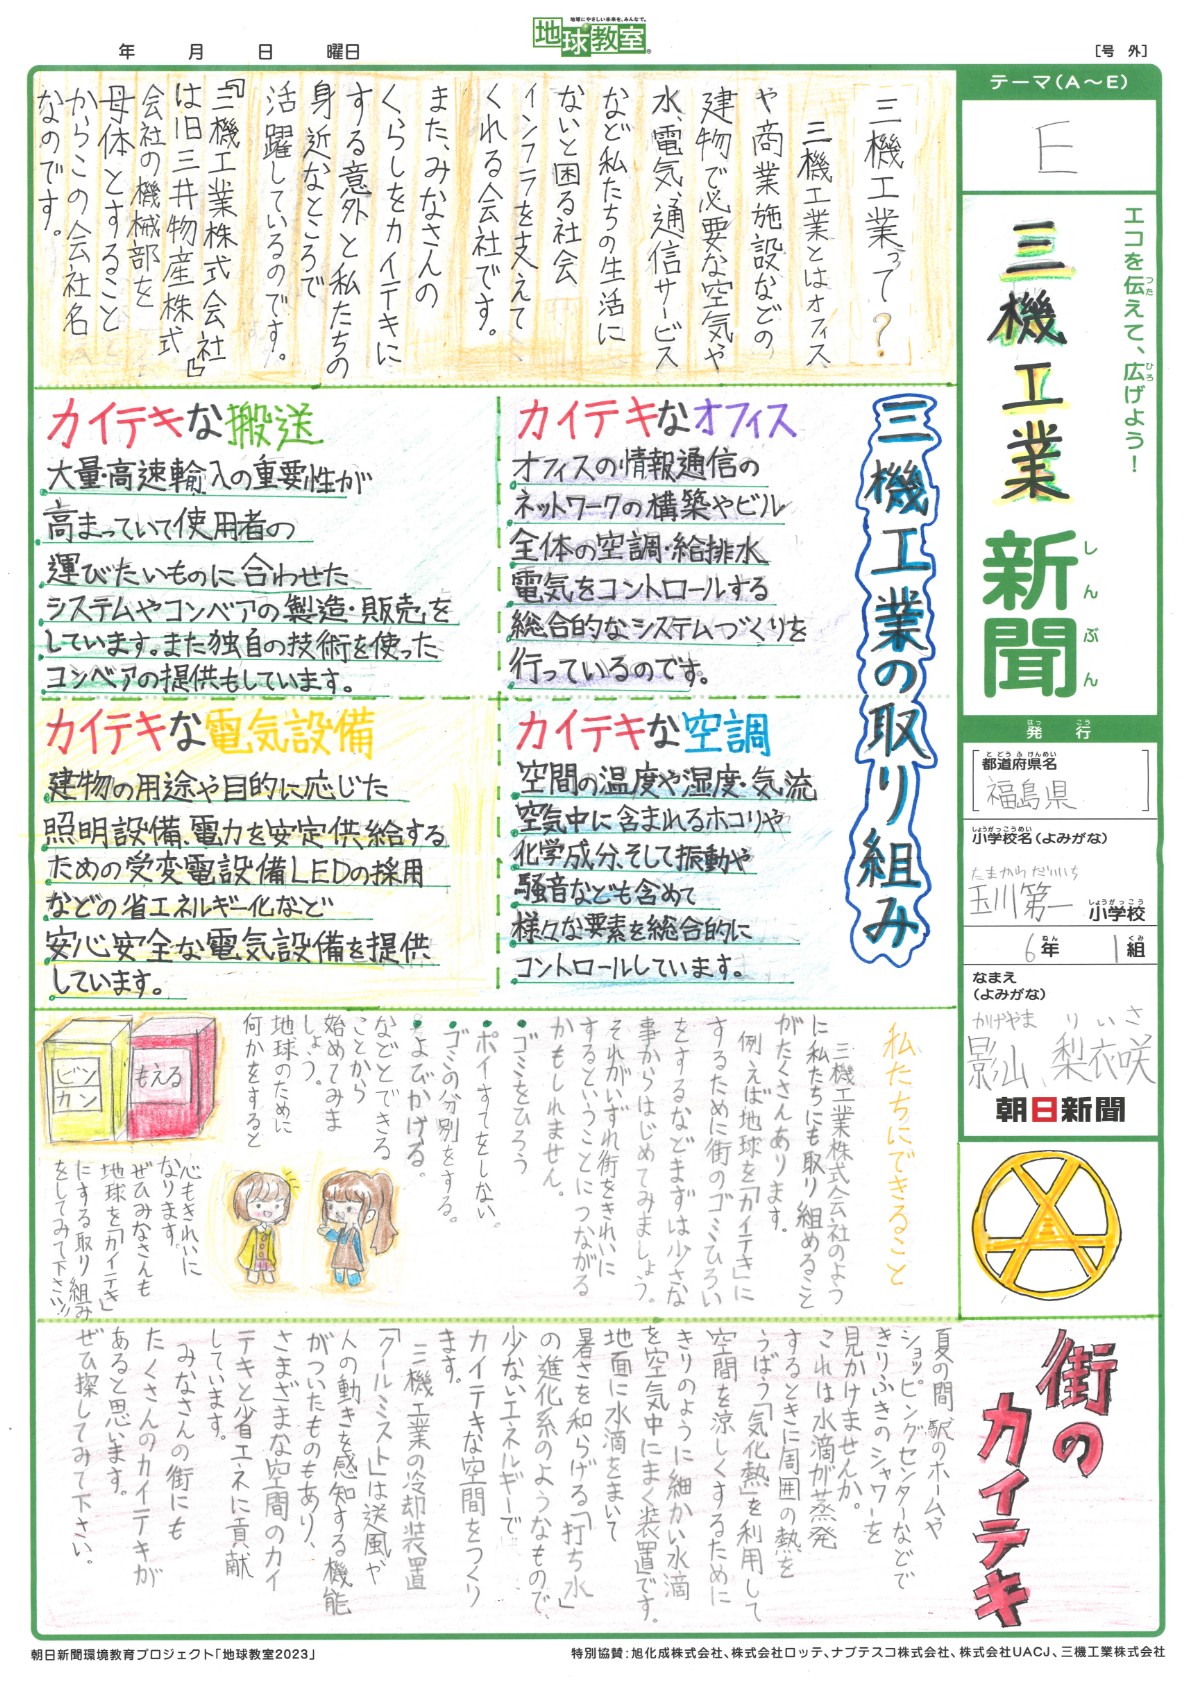 地球にやさしい未来を、みんなで。
地球教室
年 月 日 曜日
［号 外］
テーマ（A～E）
E
エコを伝えて、広げよう！
つた
ひろ
三機工業
新聞
しんぶん
発行
はっ こう
とどうふけんめい
都道府県名
福島県
しょうがっこうめい
小学校名（よみがな）
たまかわだいいち
玉川第一
しょうがっこう
小学校
6年 1組
ねん くみ
なまえ
（よみがな）
かげやま りいさ
影山 梨衣咲
朝日新聞
三機工業って？
三機工業とはオフィス
や商業施設などの
建物で必要な空気や
水、電気、通信サービス
など私たちの生活に
ないと困る社会
インフラを支えて
くれる会社です。
また、みなさんの
くらしをカイテキに
する意外と私たちの
身近なところで
活躍しているのです。
『三機工業株式会社』
は旧三井物産株式
会社の機械部を
母体とすること
からこの会社名
なのです。
三機工業の取り組み
カイテキなオフィス
オフィスの情報通信の
ネットワークの構築やビル
全体の空調・給排水
電気をコントロールする
総合的なシステムづくりを
行っているのです。
カイテキな搬送
大量・高速輸入の重要性が
高まっていて使用者の
運びたいものに合わせた
システムやコンベアの製造・販売を
しています。また独自の技術を使った
コンベアの提供もしています。
カイテキな空調
空間の温度や湿度・気流
空気中に含まれるホコリや
化学成分、そして振動や
騒音なども含めて
様々な要素を総合的に
コントロールしています。
カイテキな電気設備
建物の用途や目的に応じた
照明設備、電力を安定供給する
ための受変電設備LEDの採用
などの省エネルギー化など
安心安全な電気設備を提供
しています。
私たちにできること
三機工業株式会社のよう
に私たちにも取り組めること
がたくさんあります。
例えば地球を「カイテキ」に
するために街のゴミひろい
をするなどまずは少さな
事からはじめてみましょう。
それがいずれ街をきれいに
するということにつながる
かもしれません。
・ゴミをひろう
・ポイすてをしない。
・ゴミの分別をする。
・よびかける。
などとできる
ことから
始めてみま
しょう。
地球のために
何かをすると
心もきれいに
なります。
ぜひみなさんも
地球を「カイテキ」
にする取り組み
をしてみて下さい!!
ビン
カン
もえる
街の
カイテキ
夏の間、駅のホームや
ショッピングセンターなどで
きりふきのシャワーを
見かけませんか。
これは水滴が蒸発
するときに周囲の熱を
うばう「気化熱」を利用して
空間を涼しくするために
きりのように細かい水滴
を空気中にまく装置です。
地面に水滴をまいて
暑さを和らげる「打ち水」
の進化系のようなもので、
少ないエネルギーで
カイテキな空間をつくり
ます。
三機工業の冷却装置
「クールミスト」は送風や
人の動きを感知する機能
がついたものもあり、
さまざまな空間のカイ
テキと省エネに貢献
しています。
みなさんの街にも
たくさんのカイテキが
あると思います。
ぜひ探してみて下さい。
朝日新聞環境教育プロジェクト「地球教室2023」
特別協賛：旭化成株式会社、株式会社ロッテ、ナブテスコ株式会社、株式会社UACJ、三機工業株式会社